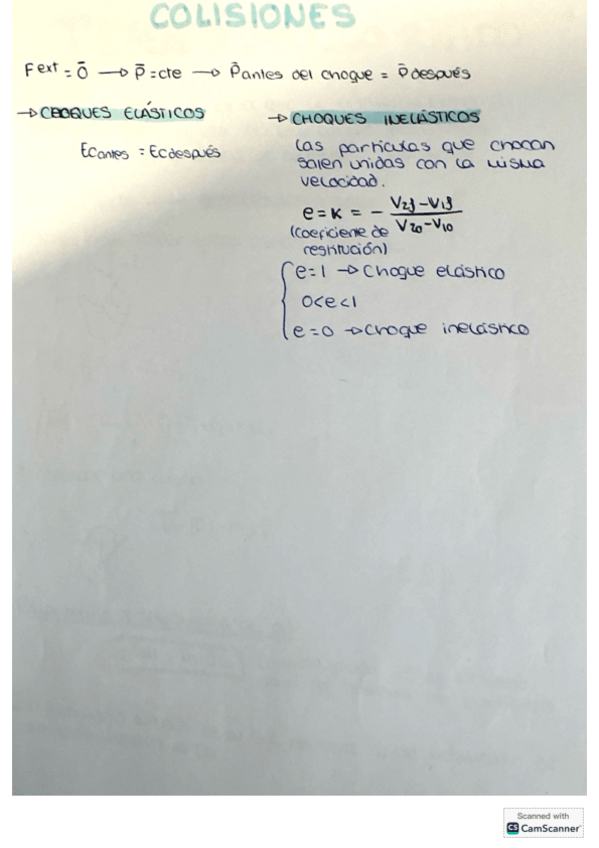 COLISIONES
Fext = 0̄ → p̄ = cte → p̄ antes del choque = p̄ después
→ CHOQUES ELÁSTICOS
Ec antes = Ec después
→ CHOQUES INELÁSTICOS
Las partículas que chocan
salen unidas con la misma
velocidad.
e = K = - (V2f - V1f) / (V20 - V10)
(coeficiente de
restitución)
e=1 → Choque elástico
0<e<1
e=0 → Choque inelástico
Scanned with
CS CamScanner